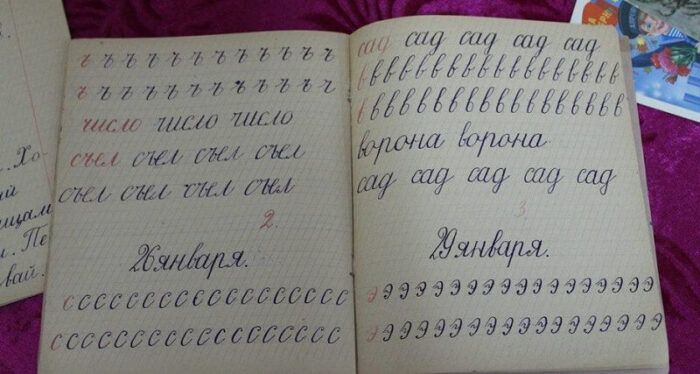 ъ ъ ъ ъ ъ ъ ъ ъ ъ ъ ъ ъ
ъ ъ ъ ъ ъ ъ ъ ъ ъ ъ ъ ъ
число число число
съел съел съел съел
съел съел съел съел
2.
26 января.
с с с с с с с с с с с с с с с с с с
с с с с с с с с с с с с с с с с с с
сад сад сад сад сад
в в в в в в в в в в в в в в в в в
в в в в в в в в в в в в в в в в в
ворона ворона
сад сад сад сад сад
3
29 января.
э э э э э э э э э э э э э э э э э э
э э э э э э э э э э э э э э э э э э